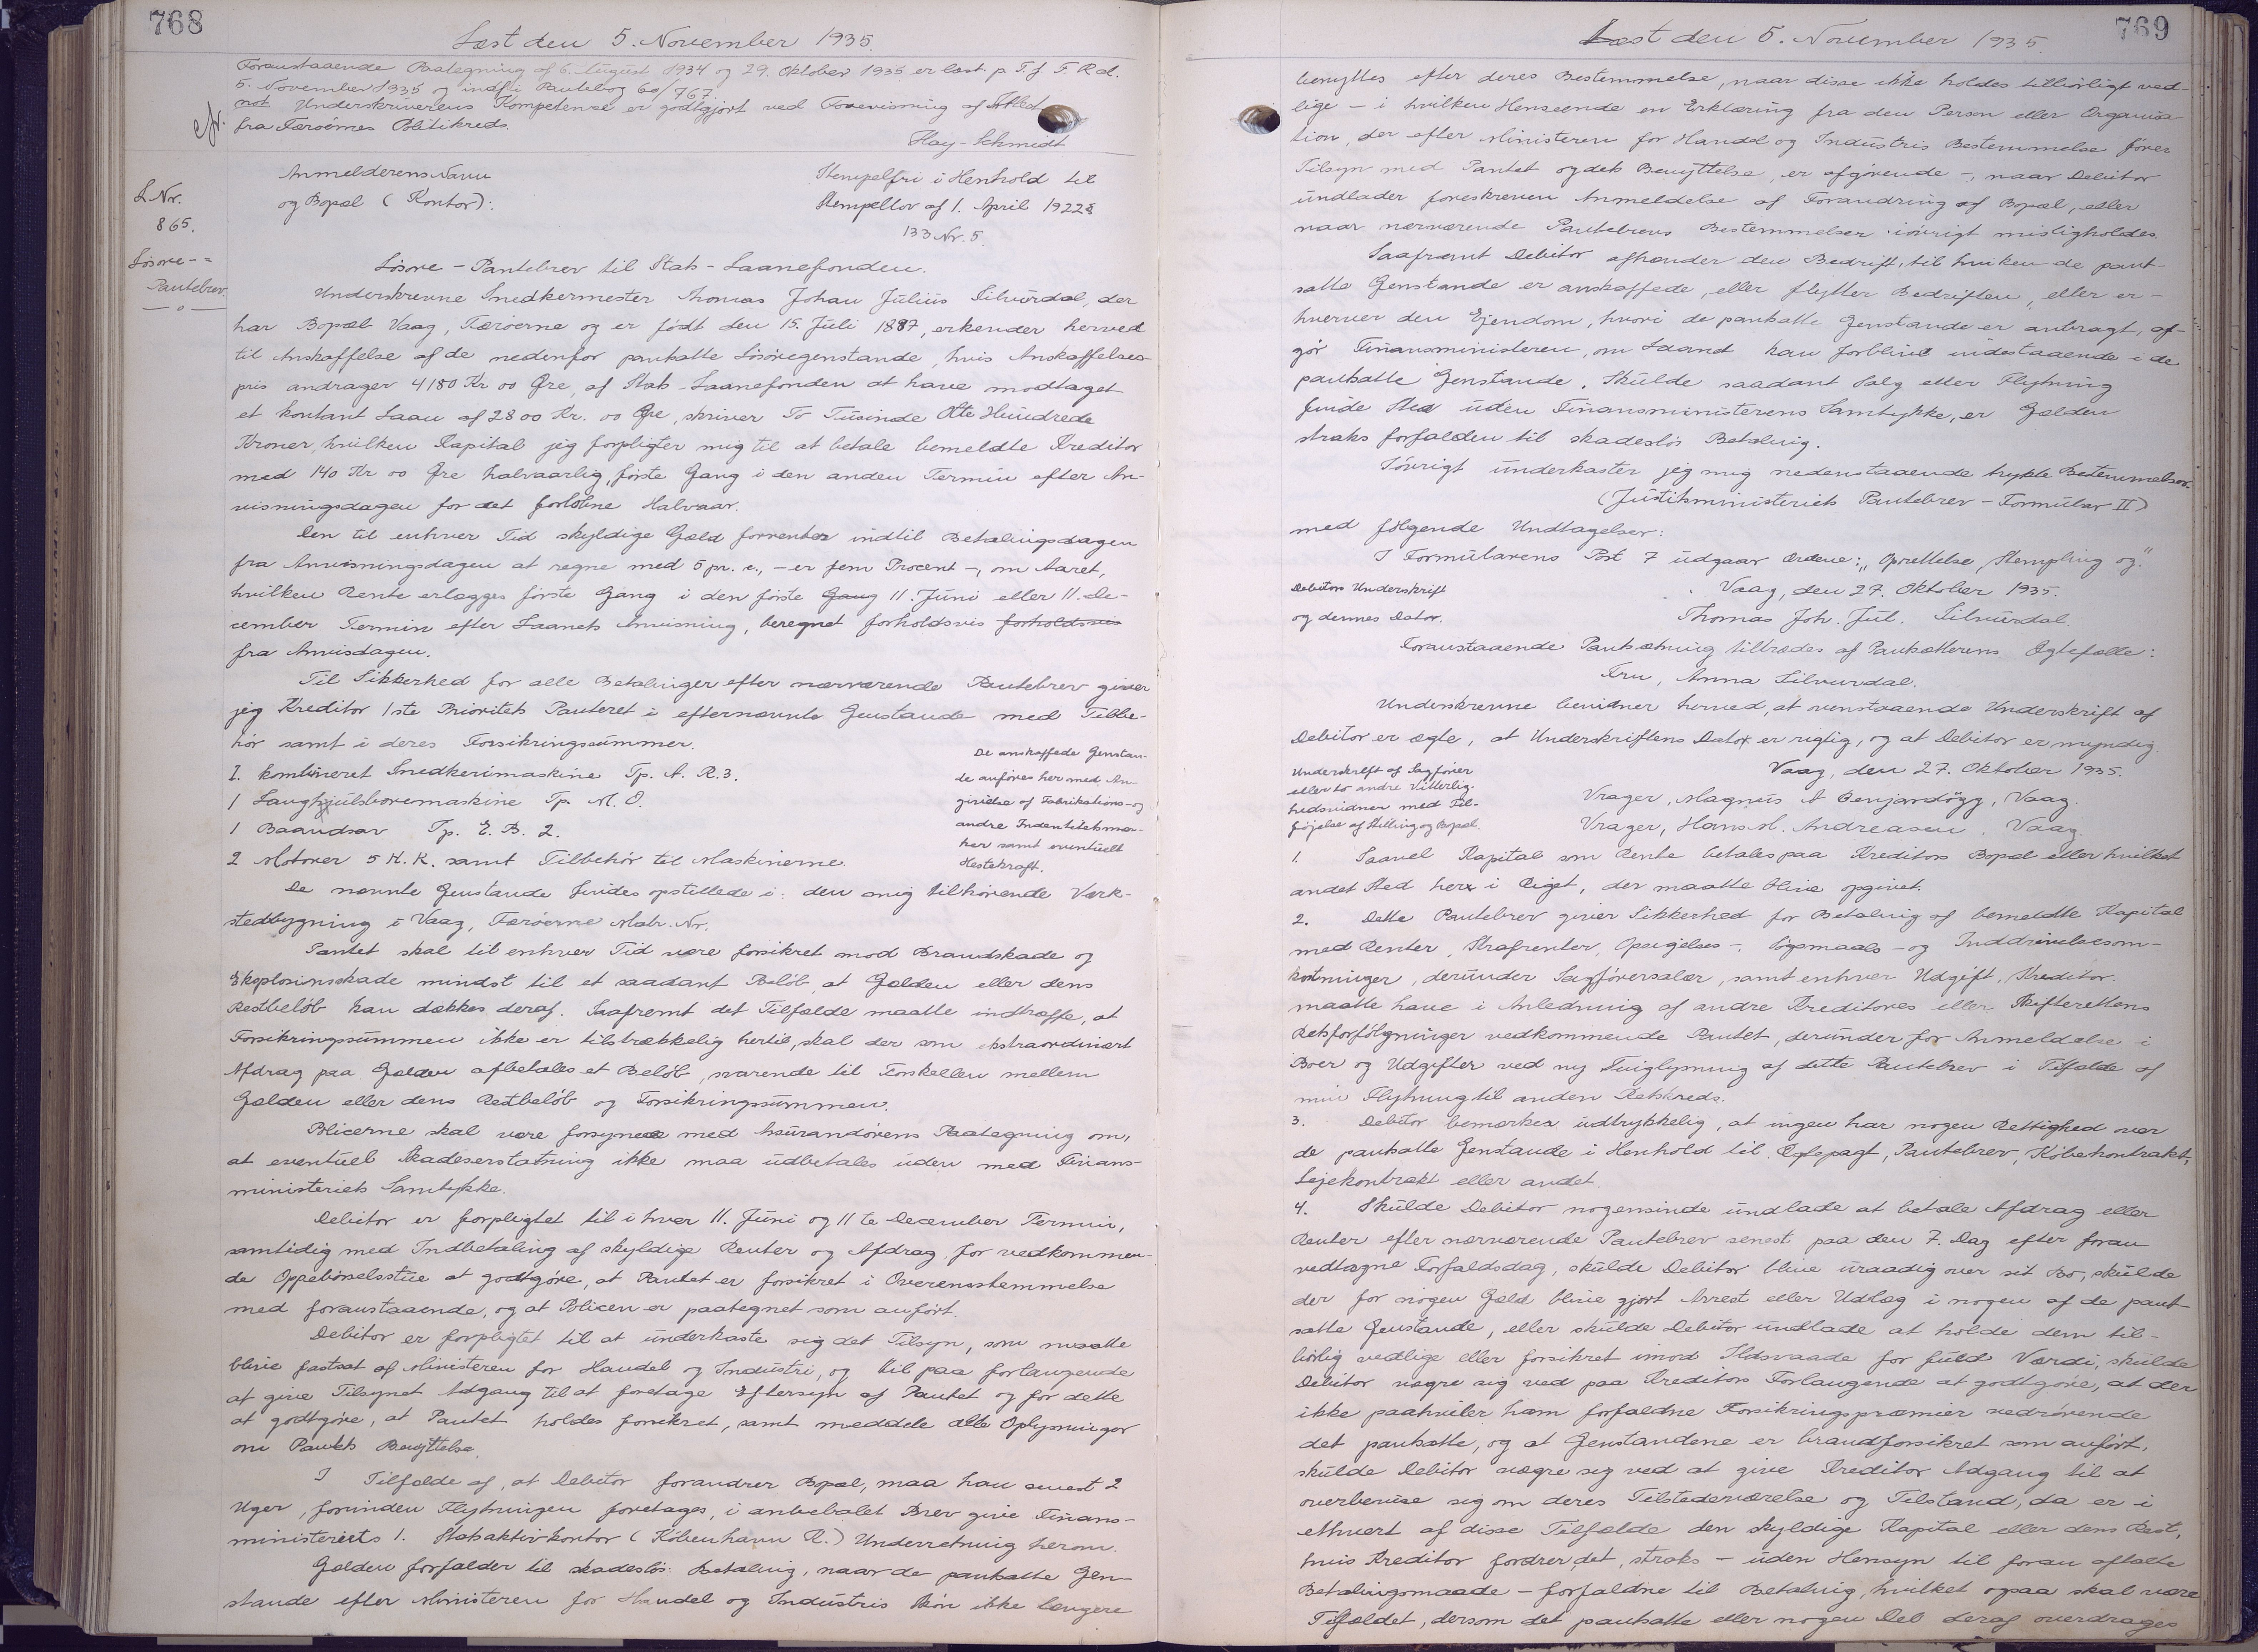 768
Læst den 5. November 1935.
Foranstaaende Paategning af 6. August 1934 og 29. Oktober 1935 er læst p. T. f. F. R d.
5. November 1935 og indf. i Pantebog 60/767.
not Underskriverens Kompetence er godtgjort ved Forevisning af
fra Færöernes Politikreds.
Hay-Schmidt
Anmelderens Navn
og Bopæl (Kontor):
Stempelfri i Henhold til
Stempellov af 1. April 1922 §
133 Nr. 5.
L. Nr.
865.
Lösöre-=
Pantebrev.
— o —
Lösöre-Pantebrev til Stats-Laanefonden.
Underskrevne Snedkermester Thomas Johan Júliús Silvurdal, der
har Bopæl Vaag, Færöerne og er födt den 15. Júli 1887, erkender herved
til Anskaffelse af de nedenfor pantsatte Lösöregenstande, hvis Anskaffelses-
pris andrager 4180 Kr 00 Öre, af Stats-Laanefonden at have modtaget
et kontant Laan af 2800 Kr. 00 Öre, skriver To Túsinde Otte Húndrede
Kroner, hvilken Kapital jeg forpligter mig til at betale bemeldte Kreditor
med 140 Kr 00 Öre halvaarlig, förste Gang i den anden Termin efter An-
visningsdagen for det forlöbne Halvaar.
Den til enhver Tid skyldige Gæld forrentes indtil Betalingsdagen
fra Anvisningsdagen at regne med 5 pr. c., - er fem Procent -, om Aaret,
hvilken Rente erlægges förste Gang i den förste Gang 11. Júni eller 11. De-
cember Termin efter Laanets Anvisning, beregnet forholdsvis forholdsvis
fra Anvisdagen.
Til Sikkerhed for alle Betalinger efter nærværende Pantebrev giver
jeg Kreditor 1ste Prioritets Panteret i efternævnte Genstande med Tilbe-
hör samt i deres Forsikringssúmmer.
1. kombineret Snedkerimaskine Tp. A. R. 3.
1 Langhjúlsboremaskine Tp. M. O.
1 Baandsav Tp. E. B. 2.
2 Motorer 5 H. K. samt Tilbehör til Maskinerne.
De anskaffede Genstan-
de anföres her med An-
givelse af Fabrikations- og
andre Indentitetsmær-
ker samt eventúelt
Hestekraft.
De nævnte Genstande findes opstillede i: den mig tilhörende Værk-
stedbygning i Vaag, Færöerne Matr. Nr.
Pantet skal til enhver Tid være forsikret mod Brandskade og
Eksplosionsskade mindst til et saadant Belöb, at Gælden eller dens
Restbelöb kan dækkes deraf. Saafremt det Tilfælde maatte indtræffe, at
Forsikringssúmmen ikke er tilstrækkelig hertil, skal der som ekstraordinært
Afdrag paa Gælden afbetales et Belöb, svarende til Forskellen mellem
Gælden eller dens Restbelöb og Forsikringssúmmen.
Policerne skal være forsynede med Assúrandörens Paategning om,
at eventúel Skadeserstatning ikke maa údbetales úden med Finans-
ministeriets Samtykke.
Debitor er forpligtet til i hver 11. Júni og 11 te December Termin,
samtidig med Indbetaling af skyldige Renter og Afdrag for vedkommen-
de Oppebörselsstúe at godtgöre, at Pantet er forsikret i Overensstemmelse
med foranstaaende, og at Policen er paategnet som anfört.
Debitor er forpligtet til at únderkaste sig det Tilsyn, som maatte
blive fastsat af Ministeren for Handel og Indústri, og til paa forlangende
at give Tilsynet Adgang til at foretage Eftersyn af Pantet og for dette
at godtgöre, at Pantet holdes forsikret, samt meddele alle Oplysninger
om Pantets Benyttelse.
I Tilfælde af, at Debitor forandrer Bopæl, maa han senest 2
Uger, forinden Flytningen foretages, i anbefalet Brev give Finans-
ministeriets 1. Statsaktivkontor (Köbenhavn K.) Underretning herom.
Gælden forfalder til skadeslös Betaling, naar de pantsatte Gen-
stande efter Ministeren for Handel og Indústris Skön ikke længere
769
Læst den 5. November 1935.
benyttes efter deres Bestemmelse, naar disse ikke holdes tilbörligt ved-
lige - i hvilken Henseende en Erklæring fra den Person eller Organisa-
tion, der efter Ministeren for Handel og Indústris Bestemmelse förer
Tilsyn med Pantet og dets Benyttelse, er afgörende -, naar Debitor
úndlader foreskreven Anmeldelse af Forandring af Bopæl, eller
naar nærværende Pantebrevs Bestemmelser iövrigt misligholdes.
Saafremt Debitor afhænder den Bedrift, til hvilken de pant-
satte Genstande er anskaffede, eller flytter Bedriften, eller er-
hverver den Ejendom, hvori de pantsatte Genstande er anbragt, af-
gör Finansministeren, om Laanet kan forblive indestaaende i de
pantsatte Genstande. Skúlde saadant Salg eller Flytning
finde Sted úden Finansministerens Samtykke, er Gælden
straks forfalden til skadeslös Betaling.
Iövrigt únderkaster jeg mig nedenstaaende trykte Bestemmelser.
(Jústitsministeriets Pantebrev-Formúlar II)
med fölgende Undtagelser:
I Formúlarens Post 7 údgaar Ordene: „Oprettelse, Stempling og".
Debitors Underskrift
og dennes Dato.
Vaag, den 27. Oktober 1935.
Thomas Joh. Júl. Silvúrdal.
Foranstaaende Pantsætning tiltrædes af Pantsætterens Ægtefælle:
Fru, Anna Silvurdal.
Underskrevne bevidner herved, at ovenstaaende Underskrift af
Debitor er ægte, at Underskriftens Dato er rigtig, og at Debitor er myndig.
Underskrift af Sagförer
eller to andre Vitterlig-
hedsvidner med Til-
föjelse af Stilling og Bopæl.
Vaag, den 27. Oktober 1935.
Vrager, Magnús A Benjardögg, Vaag.
Vrager, Hans M. Andreasen, Vaag.
1. Saavel Kapital som Rente betales paa Kreditors Bopæl eller hvilket
andet Sted her i Riget, der maatte blive opgivet.
2. Dette Pantebrev giver Sikkerhed for Betaling af bemeldte Kapital
med Renter, Strafrenter, Opsigelses-, Sögsmaals- og Inddrivelsesom-
kostninger, derúnder Sagförersalær, samt enhver Udgift, Kreditor
maatte have i Anledning af andre Kreditores eller Skifterettens
Retsforfölgninger vedkommende Pantet, derúnder for Anmeldelse i
Boer og Udgifter ved ny Tinglysning af dette Pantebrev i Tilfælde af
min Flytning til anden Retskreds.
3. Debitor bemærker údtrykkelig, at ingen har nogen Rettighed over
de pantsatte Genstande i Henhold til Ægtepagt, Pantebrev, Köbekontrakt,
Lejekontrakt eller andet.
4. Skúlde Debitor nogensinde úndlade at betale Afdrag eller
Renter efter nærværende Pantebrev senest paa den 7. Dag efter foran
vedtagne Forfaldsdag, skúlde Debitor blive úraadig over sit Bo, skúlde
der for nogen Gæld blive gjort Arrest eller Udlæg i nogen af de pant-
satte Genstande, eller skúlde Debitor úndlade at holde dem til-
börlig vedlige eller forsikret imod Ildsvaade for fúld Værdi, skúlde
Debitor vægre sig ved paa Kreditors Forlangende at godtgöre, at der
ikke paahviler ham forfaldne Forsikringspræmier vedrörende
det pantsatte, og at Genstandene er brandforsikret som anfört,
skúlde Debitor vægre sig ved at give Kreditor Adgang til at
overbevise sig om deres Tilstedeværelse og Tilstand, da er i
ethvert af disse Tilfælde den skyldige Kapital eller dens Rest,
hvis Kreditor fordrer det, straks - úden Hensyn til foran aftalte
Betalingsmaade - forfaldne til Betaling, hvilket ogsaa skal være
Tilfældet, dersom det pantsatte eller nogen Del deraf overdrages